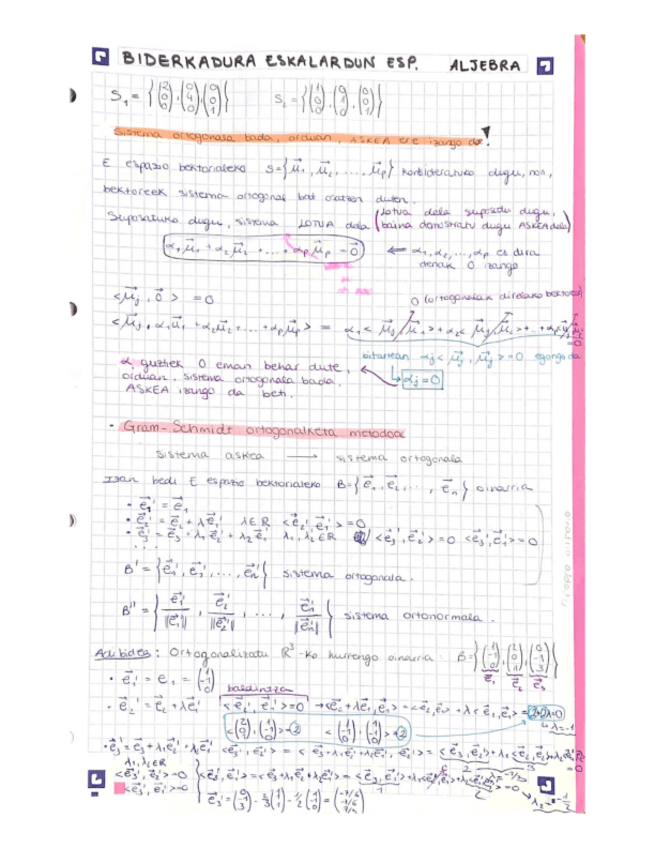 BIDERKADURA ESKALARDUN ESP. ALJEBRA
S₁ = {(2 0 0), (0 4 0), (0 0 0)} S₂ = {(1 0 0), (0 1 0), (0 0 1)}
Sistema ortogonala bada, orduan, ASKEA ere izango da!
E espazio bektorialeko S={μ⃗₁, μ⃗₂, ..., μ⃗ₚ} konsideratuko dugu, non,
bektoreek sistema ortogonal bat osatzen duten.
Suposatuko dugu, sistema LOTUA dela (lotua dela suposatu dugu,
baina demostratu dugu ASKEA dela)
α₁μ⃗₁ + α₂μ⃗₂ + ... + αₚμ⃗ₚ = 0⃗ ← α₁, α₂, ..., αₚ ez dira
denak 0 izango
<μ⃗ⱼ, 0⃗> = 0
0 (ortogonalak direlako bektoreak)
<μ⃗ⱼ, α₁μ⃗₁ + α₂μ⃗₂ + ... + αₚμ⃗ₚ> = α₁<μ⃗ⱼ, μ⃗₁> + α₂<μ⃗ⱼ, μ⃗₂> + ... + αₚ
bitartean αⱼ<μ⃗ⱼ, μ⃗ⱼ> = 0 egongo da
αⱼ = 0
α guztiek 0 eman behar dute,
orduan, sistema ortogonala bada,
ASKEA izango da beti.
· Gram-Schmidt ortogonalketa metodoa
sistema askea → sistema ortogonala
Izan bedi E espazio bektorialeko B={e⃗₁, e⃗₂, ..., e⃗ₙ} oinarria
· e⃗₁' = e⃗₁
· e⃗₂' = e⃗₂ + λe⃗₁' λ∈R <e⃗₂', e⃗₁'> = 0
· e⃗₃' = e⃗₃ + λ₁e⃗₁' + λ₂e⃗₂' λ₁, λ₂∈R <e⃗₃', e⃗₂'> = 0 <e⃗₃', e⃗₁'> = 0
...
B' = {e⃗₁', e⃗₂', ..., e⃗ₙ'} sistema ortogonala.
B'' = {e⃗₁'/||e⃗₁'||, e⃗₂'/||e⃗₂'||, ..., e⃗ₙ'/||e⃗ₙ'||} sistema ortonormala.
Adibidea: Ortogonalizatu R³-ko hurrengo oinarria: B={(1 -1 0), (2 0 1), (0 -1 3)}
e⃗₁ e⃗₂ e⃗₃
· e⃗₁' = e₁ = (1 -1 0)
baldintza
· e⃗₂' = e⃗₂ + λe⃗₁' <e⃗₂', e⃗₁'> = 0 → <e⃗₂ + λe⃗₁, e⃗₁> = <e⃗₂, e⃗₁> + λ<e⃗₁, e⃗₁> = 2+2λ=0
λ=-1
· e⃗₃' = e⃗₃ + λ₁e⃗₁' + λ₂e⃗₂'
λ₁, λ₂∈R
<e⃗₃', e⃗₂'> = 0
<e⃗₃', e⃗₁'> = 0